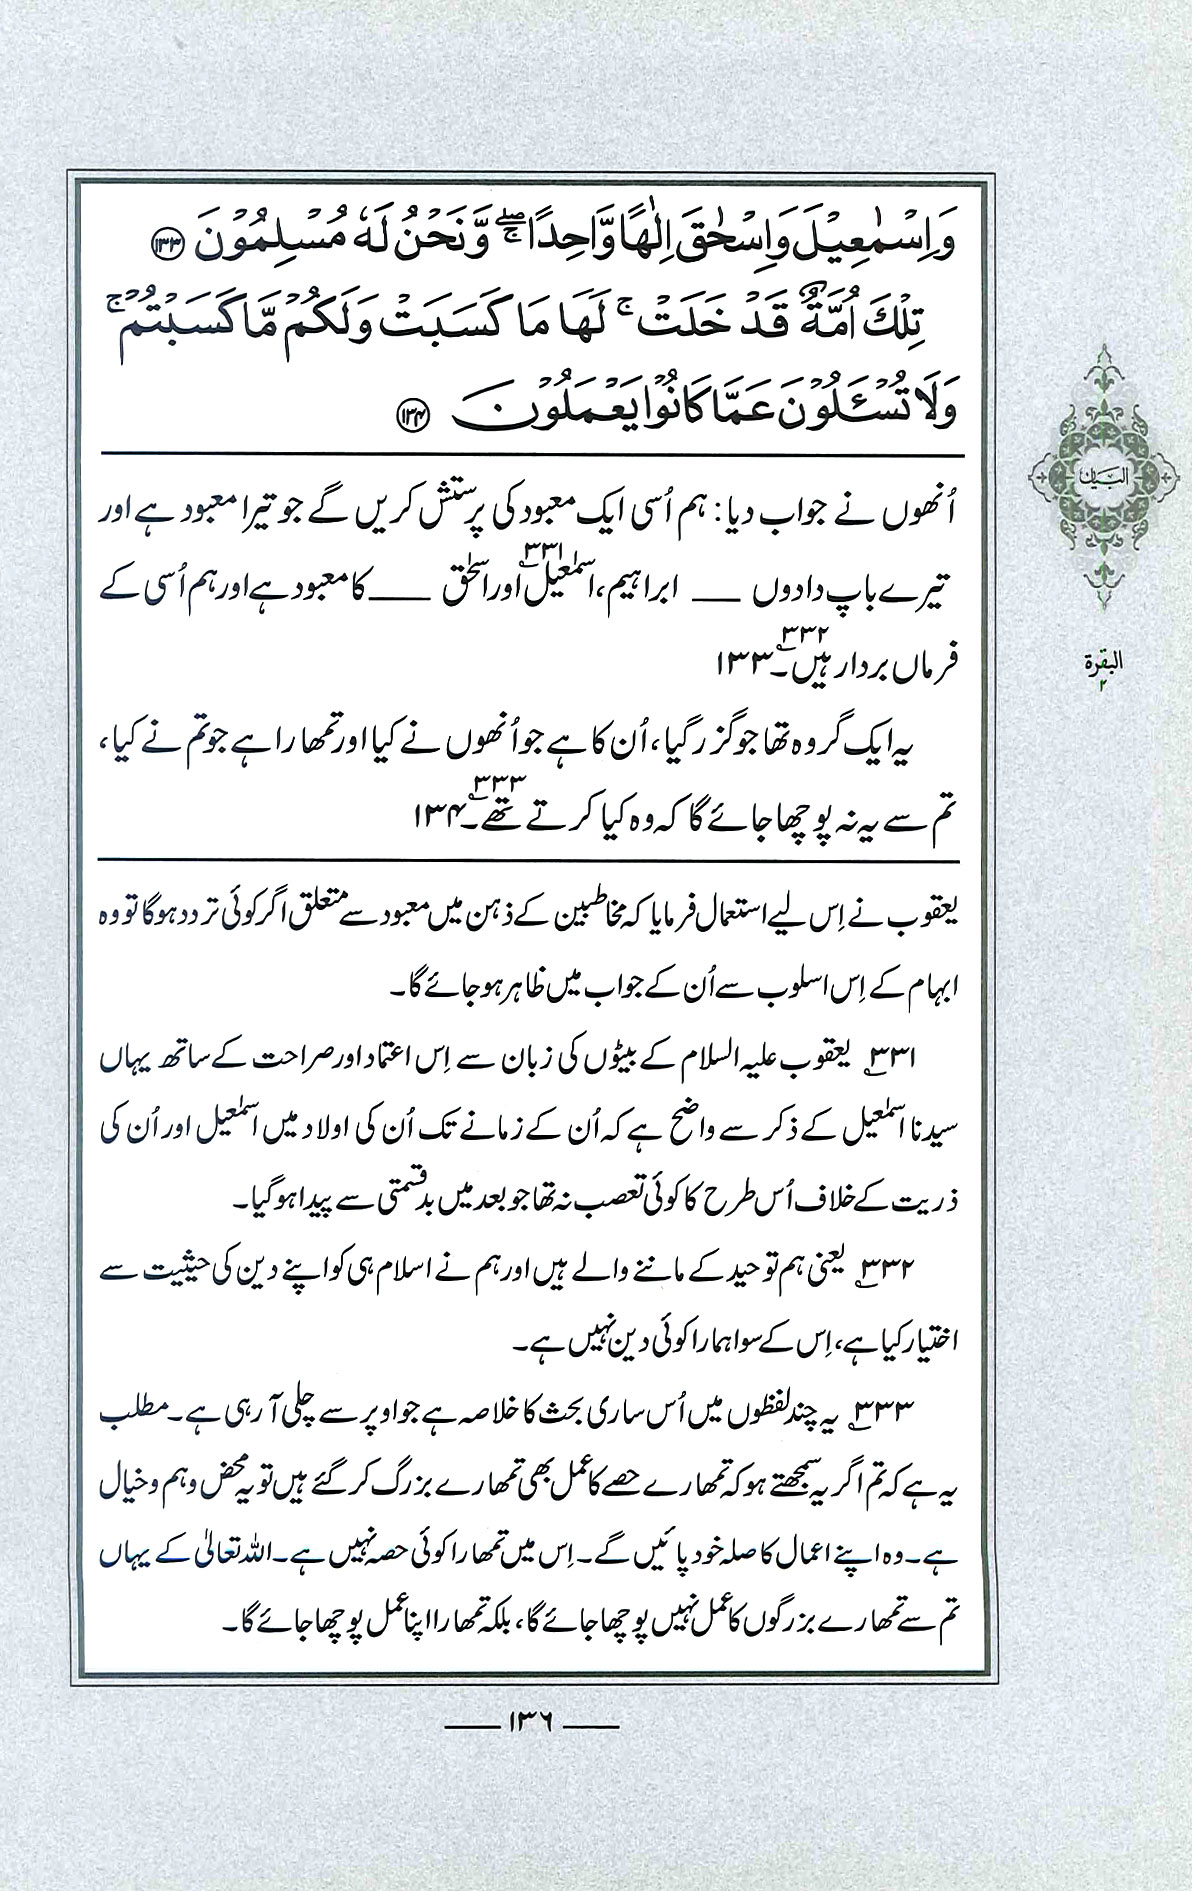 وَاِسْمٰعِيْلَ وَاِسْحٰقَ اِلٰهًا وَّاحِدًا ۖۚ وَّنَحْنُ لَهٗ مُسْلِمُوْنَ ﴿۱۳۳﴾
تِلْكَ اُمَّةٌ قَدْ خَلَتْ ۚ لَهَا مَا كَسَبَتْ وَلَكُمْ مَّا كَسَبْتُمْ ۚ
وَلَا تُسْـَٔلُوْنَ عَمَّا كَانُوْا يَعْمَلُوْنَ ﴿۱۳۴﴾
اُنھوں نے جواب دیا: ہم اُسی ایک معبود کی پرستش کریں گے جو تیرا معبود ہے اور
تیرے باپ دادوں ___ ابراہیم، اسمٰعیل اور اسحٰق۳۳۱ ___ کا معبود ہے اور ہم اُسی کے
فرماں بردار ہیں۔۳۳۲ ۱۳۳
یہ ایک گروہ تھا جو گزر گیا، اُن کا ہے جو اُنھوں نے کیا اور تمھارا ہے جو تم نے کیا،
تم سے یہ نہ پوچھا جائے گا کہ وہ کیا کرتے تھے۔۳۳۳ ۱۳۴
یعقوب نے اِس لیے استعمال فرمایا کہ مخاطبین کے ذہن میں معبود سے متعلق اگر کوئی تردد ہوگا تو وہ
ابہام کے اِس اسلوب سے اُن کے جواب میں ظاہر ہو جائے گا۔
۳۳۱؂ یعقوب علیہ السلام کے بیٹوں کی زبان سے اِس اعتماد اور صراحت کے ساتھ یہاں
سیدنا اسمٰعیل کے ذکر سے واضح ہے کہ اُن کے زمانے تک اُن کی اولاد میں اسمٰعیل اور اُن کی
ذریت کے خلاف اُس طرح کا کوئی تعصب نہ تھا جو بعد میں بدقسمتی سے پیدا ہوگیا۔
۳۳۲؂ یعنی ہم توحید کے ماننے والے ہیں اور ہم نے اسلام ہی کو اپنے دین کی حیثیت سے
اختیار کیا ہے، اِس کے سوا ہمارا کوئی دین نہیں ہے۔
۳۳۳؂ یہ چند لفظوں میں اُس ساری بحث کا خلاصہ ہے جو اوپر سے چلی آ رہی ہے۔ مطلب
یہ ہے کہ تم اگر یہ سمجھتے ہو کہ تمھارے حصے کا عمل بھی تمھارے بزرگ کر گئے ہیں تو یہ محض وہم و خیال
ہے۔ وہ اپنے اعمال کا صلہ خود پائیں گے۔ اِس میں تمھارا کوئی حصہ نہیں ہے۔ اللہ تعالیٰ کے یہاں
تم سے تمھارے بزرگوں کا عمل نہیں پوچھا جائے گا، بلکہ تمھارا اپنا عمل پوچھا جائے گا۔
البیان
البقرۃ
۲
___ ۱۳۶ ___